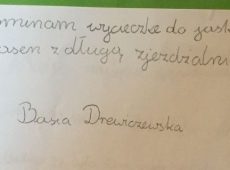 ominam wycieczkę do jask
asen z długą zjeżdżalni
Basia Drewczewska